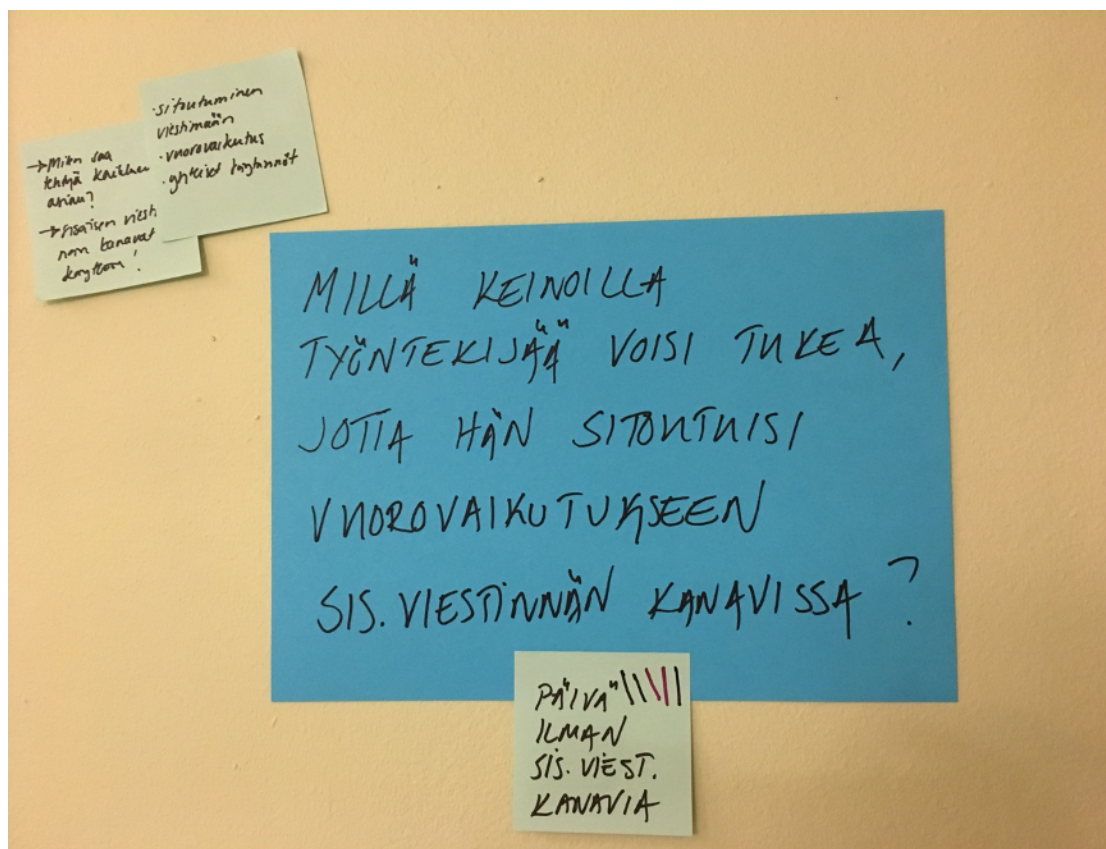 →Miten saa
tehtyä kaikkien
asian?
→Sisäisen viest
nän kanavat
käyttöön!
·sitoutuminen
viestimään
·vuorovaikutus
·yhteiset käytännöt
MILLÄ KEINOILLA
TYÖNTEKIJÄÄ VOISI TUKEA,
JOTTA HÄN SITOUTUISI
VUOROVAIKUTUKSEEN
SIS. VIESTINNÄN KANAVISSA?
PÄIVÄ
ILMAN
SIS. VIEST.
KANAVIA